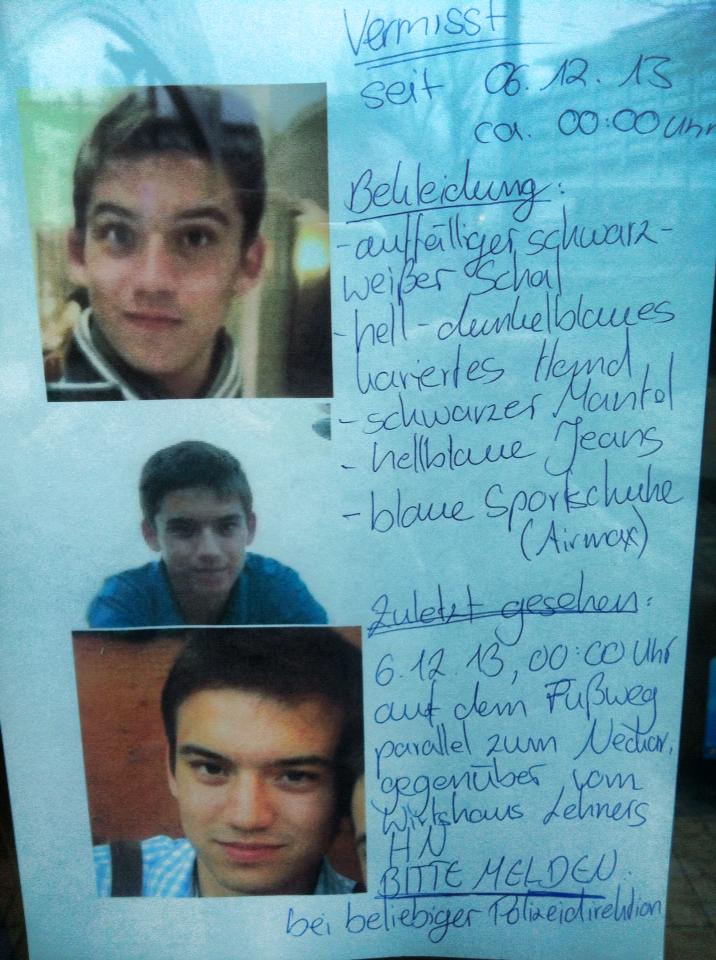 Vermisst
seit 06.12.13
ca. 00:00 Uhr
Bekleidung:
- auffälliger schwarz-
weißer Schal
- hell-dunkelblaues
kariertes Hemd
- schwarzer Mantel
- hellblaue Jeans
- blaue Sportschuhe
(Airmax)
Zuletzt gesehen:
6.12.13, 00:00 Uhr
auf dem Fußweg
parallel zum Neckar,
gegenüber vom
Wirtshaus Lehners
HN
BITTE MELDEN
bei beliebiger Polizeidirektion